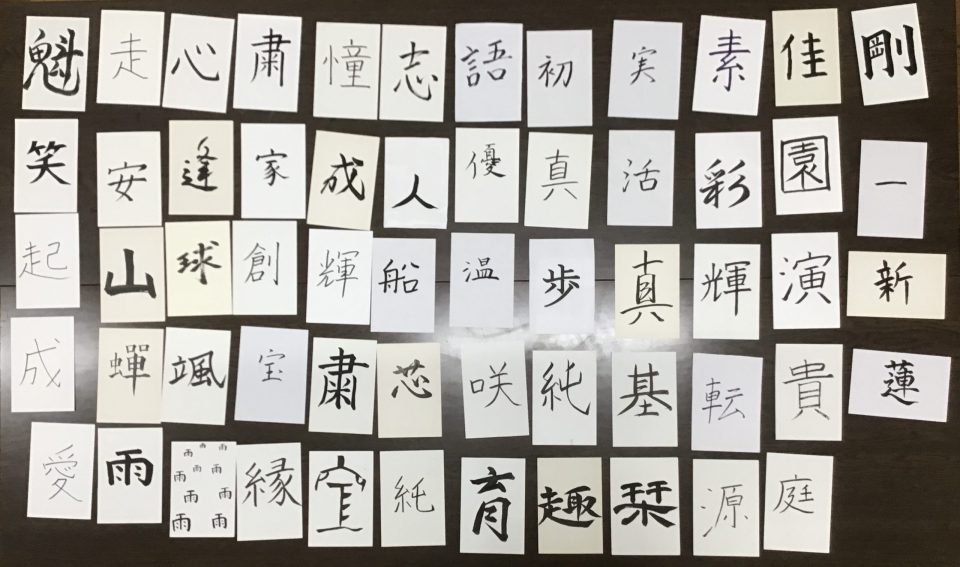 魁 走 心 粛 憧 志 語 初 実 素 佳 剛
笑 安 逢 家 成 人 優 真 活 彩 園 一
起 山 球 創 輝 船 温 歩 真 輝 演 新
成 蟬 颯 宝 粛 芯 咲 純 基 転 貴 蓮
愛 雨 雨雨雨雨雨雨雨雨雨雨 縁 宜 純 育 趣 栞 源 庭